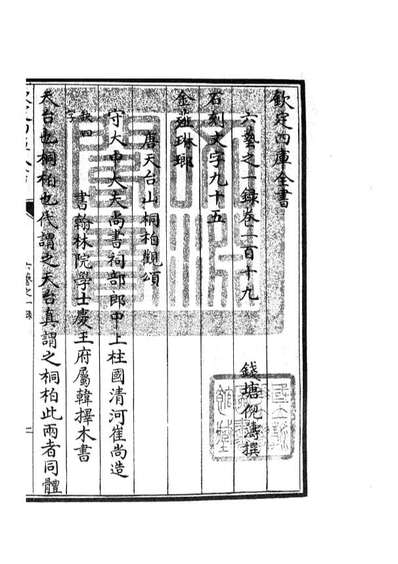 欽定四庫全書
六藝之一錄卷一百十九 錢塘倪濤撰
石刻文字九十五
金薤琳瑯
唐天台山桐柏觀頌
守大中大夫尚書祠部郎中上柱國清河崔尚造
缺四字 書翰林院學士慶王府屬韓擇木書
天台也桐柏也代謂之天台真謂之桐柏此兩者同體